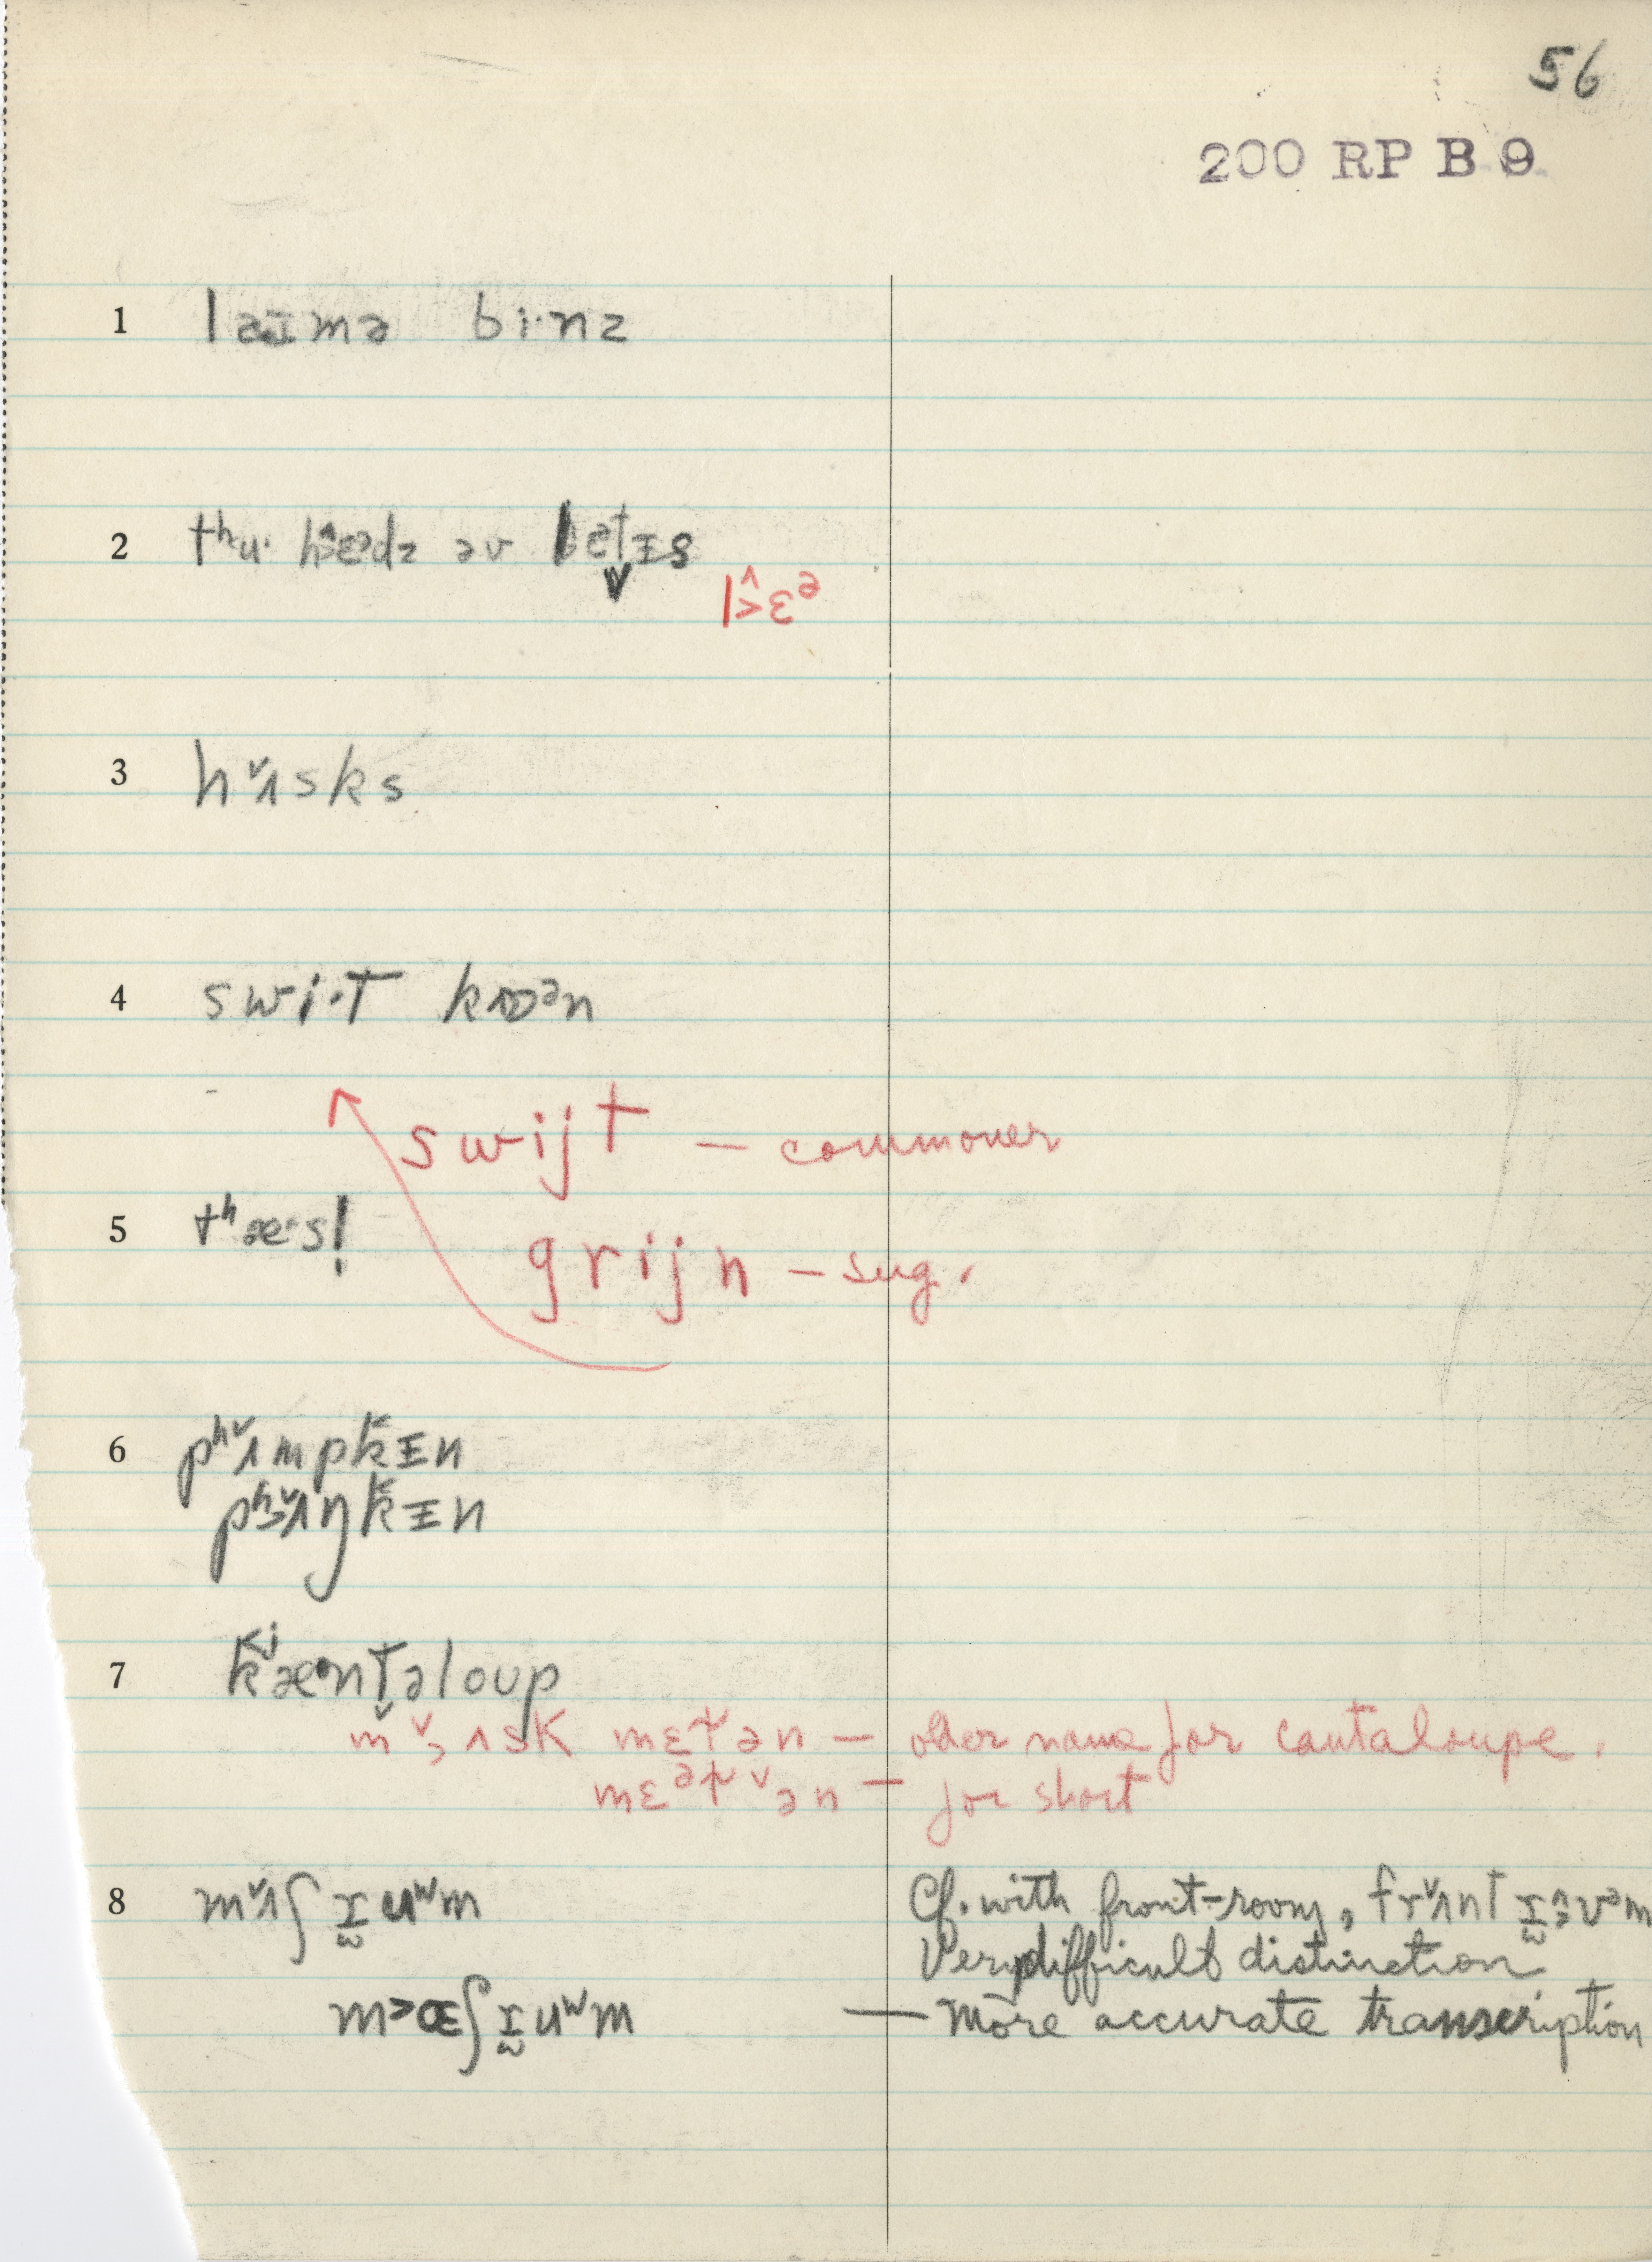 56
200 RP B 9
1 laɪmə bi·nz
2 tʰu· hɛᵊdz əv lɛtɪs
l>̂ɛᵊ
3 hʌ̌sks
4 swi·t kɒᵊn
swijt — commoner
5 tʰæ·sl̩
grijn — sug.
6 pʰʌ̌mpk̆ɪn
pʰʌ̌ŋk̆ɪn
7 kʲæntəloup
mʌ̌sk mɛlən — older name for cantaloupe.
mɛᵊlən — for short
8 mʌ̌ʃ ruʷm Cf. with front-room, frʌ̌nt rʊᵊm
Very difficult distinction
mɶʃ ruʷm — More accurate transcription